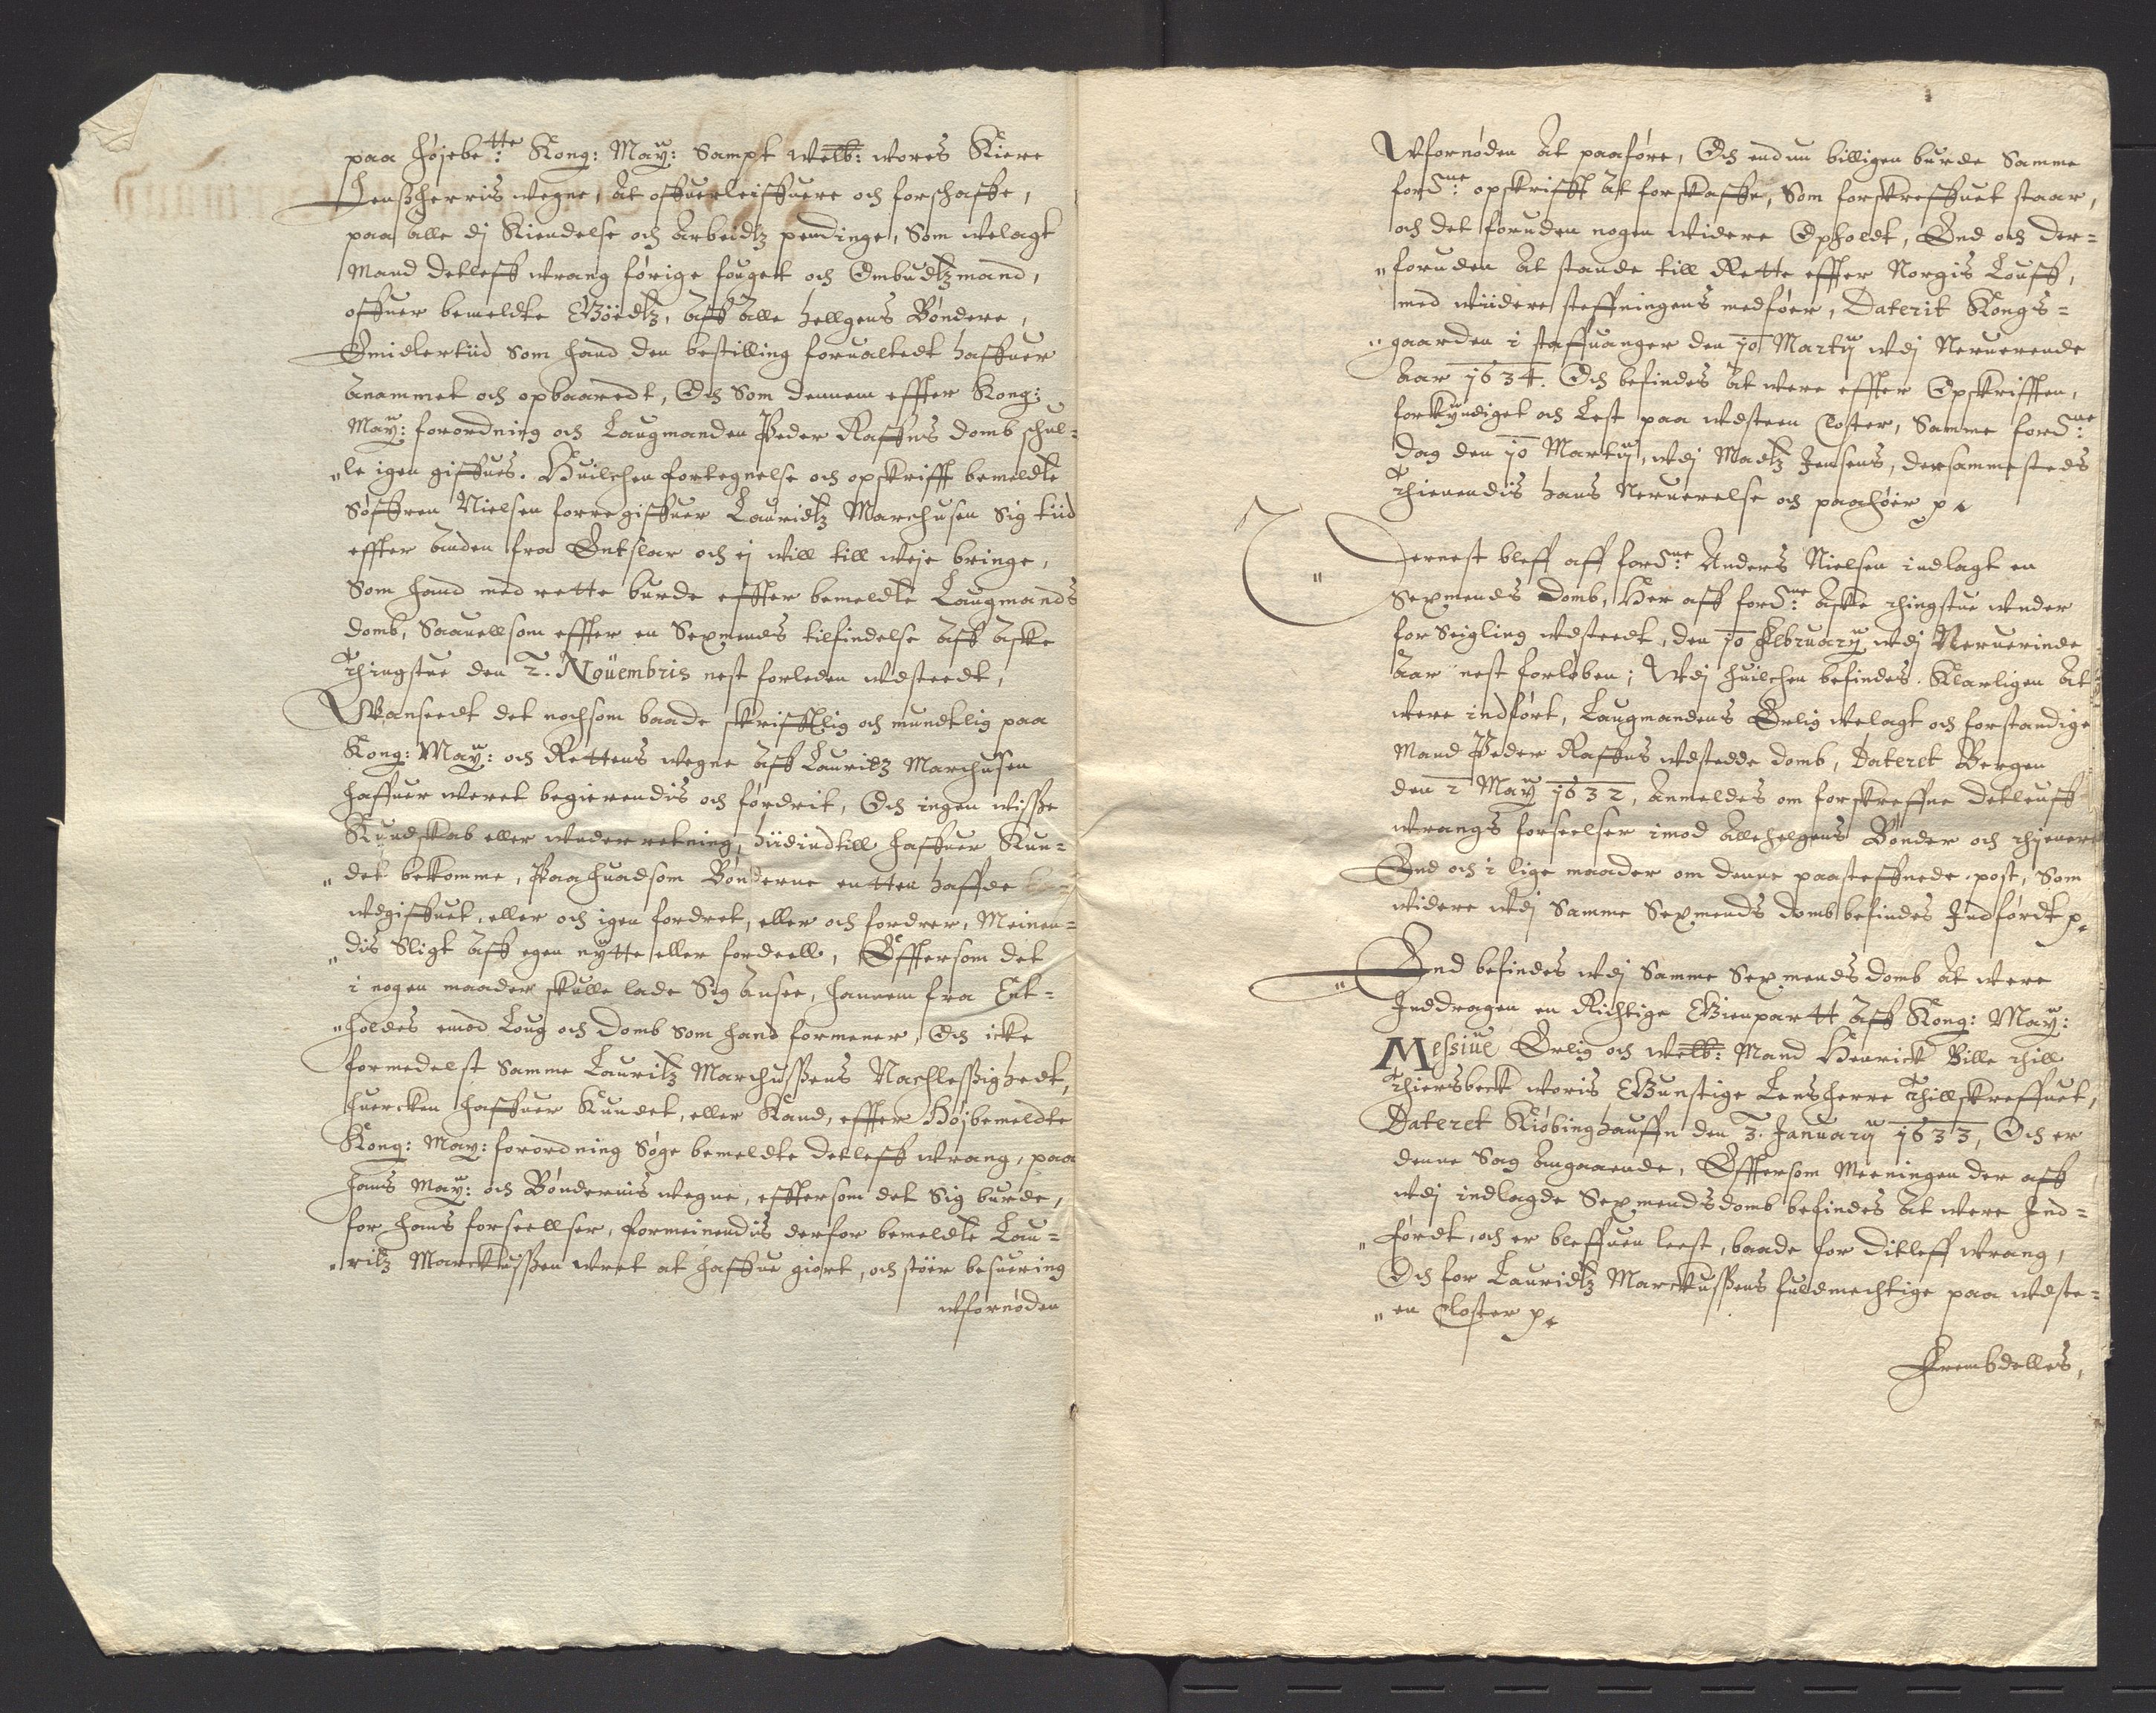 paa højebe:tte Kong: May: Sampt welb: wores Kiere
Lenssherris wegne, at offuerleiffuere och forschaffe,
paa alle dj Kiendelse och Arbeidtz pendinge, Som welagt
Mand Detleff wrangförige fouget och Ombudtzmand,
offuer bemeldte Göedtz, aff Alle hellgens Bönder,
Emidlertiid som hand den bestilling foruallted haffuer
Anammet och opbaaredt, Och som dennem effter Kong:
May: forordning och Laugmanden Peder Raffns domb schul-
"le igen giffues. Huilchen fortegnelse och opskrifft bemeldte
Söffren Nielsen forregiffuer Lauridtz Marchusen sig tiid
effter anden fra Entslar och ej will till weje bringe,
Som hand med rette burde effter bemeldte Laugmands
domb, Saauellsom effter en Sexmends tilfindelse Aff Aske
Thingstue den 2. Nouembris nest forleden wdsteedt,
Wanseedt det nochsom baade skrifftlig och mundtlig paa
Kong: May: och Rettens wegne Aff Lauritz Marchusen
haffuer weret begierendis och fördrit, Och ingen wisse
Kundskab eller wnderretning, hiidindtill haffuer Kun-
"det bekomme, Paa huadsom Bönderne entten haffde
wdgiffuet, eller och igen fordret, eller och fordrer, Meinen-
"dis Sligt Aff egen nytte eller fordeell, Efftersom det
i nogen maader skulle lade Sig Ansee, hannem fra Ent-
"holdes emod Loug och domb som hand formener, Och icke
formedelst Samme Lauritz Marchussens Nachlessighedt,
huercken haffuer Kundet, eller Kand, effter Höjbemeldte
Kong: May: forordning Söge bemeldte Detleff wrang, paa
hans May: och Böndernis wegne, efftersom det Sig burde,
for hans forseellser, formeinendis derfor bemeldte Lau-
"ritz Marckussen wret at haffue giort, och stöer besuering
wfornöden
Wfornöden At paaföre, Och endnu billigen burde Samme
ford:ne opskrifft At forskaffe, Som forskreffuet staar,
och det foruden nogen widere Opholdt, End och der-
"foruden At stande till Rette effter Norgis Louff,
med wiidere steffningens medföer, Daterit Kongs-
"gaarden i staffuanger den 10 Martij wdj Neruerende
Aar 1634. Och befindes At were effter Opskrifften,
forkyndiget och Lest paa wdsteen Closter, Samme ford:ne
dag den 10 Martij, wdj Madtz Jensens, dersammesteds
Thienendis hans Neruerelse och paahöer p.
"Dernest bleff aff ford:ne Anders Nielsen indlagt en
Sexmends Domb, Her aff ford:ne Aske thingstue wnder
forseigling wdsteedt, den 10 Februarij wdj Neruerinde
Aar nest forleben; Wdj huilchen befindes Klarligen At
were indfört, Laugmandens Erlig welagt och forstandige
Mand Peder Raffns wdstedde domb, Dateret Bergen
den 2 May 1632, Anmeldes om forskreffne Detleuff
wrangs forseelser imod Allehelgens Bönder och thjenere
End och i lige maader om denne paasteffnede post, Som
widere wdj Samme Sexmends domb befindes Indfördt p.
"End befindes wdj Samme Sexmends domb At were
Inddragen en Richtige Gienpartt Aff Kong: May:
Messiue Erlig och welb: Mand Henrick Bille thill
Thiersbeck woris Gunstige Lensherre Thillskreffuet,
Dateret Kiöbinghauffn den 3. Januarij 1633, Och er
denne Sag Angaaende, Efftersom Meeningen der aff
wdj indlagde Sexmendsdomb befindes At were Ind-
"fördt, och er bleffuen leest, baade for Ditleff wrang,
Och for Lauridtz Marckussens fuldmechtige paa wdste-
"en Closter p.
Frembdelles,